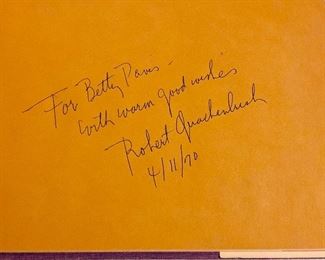 For Betty Davis -
with warm good wishes
Robert Quackenbush
4/11/70